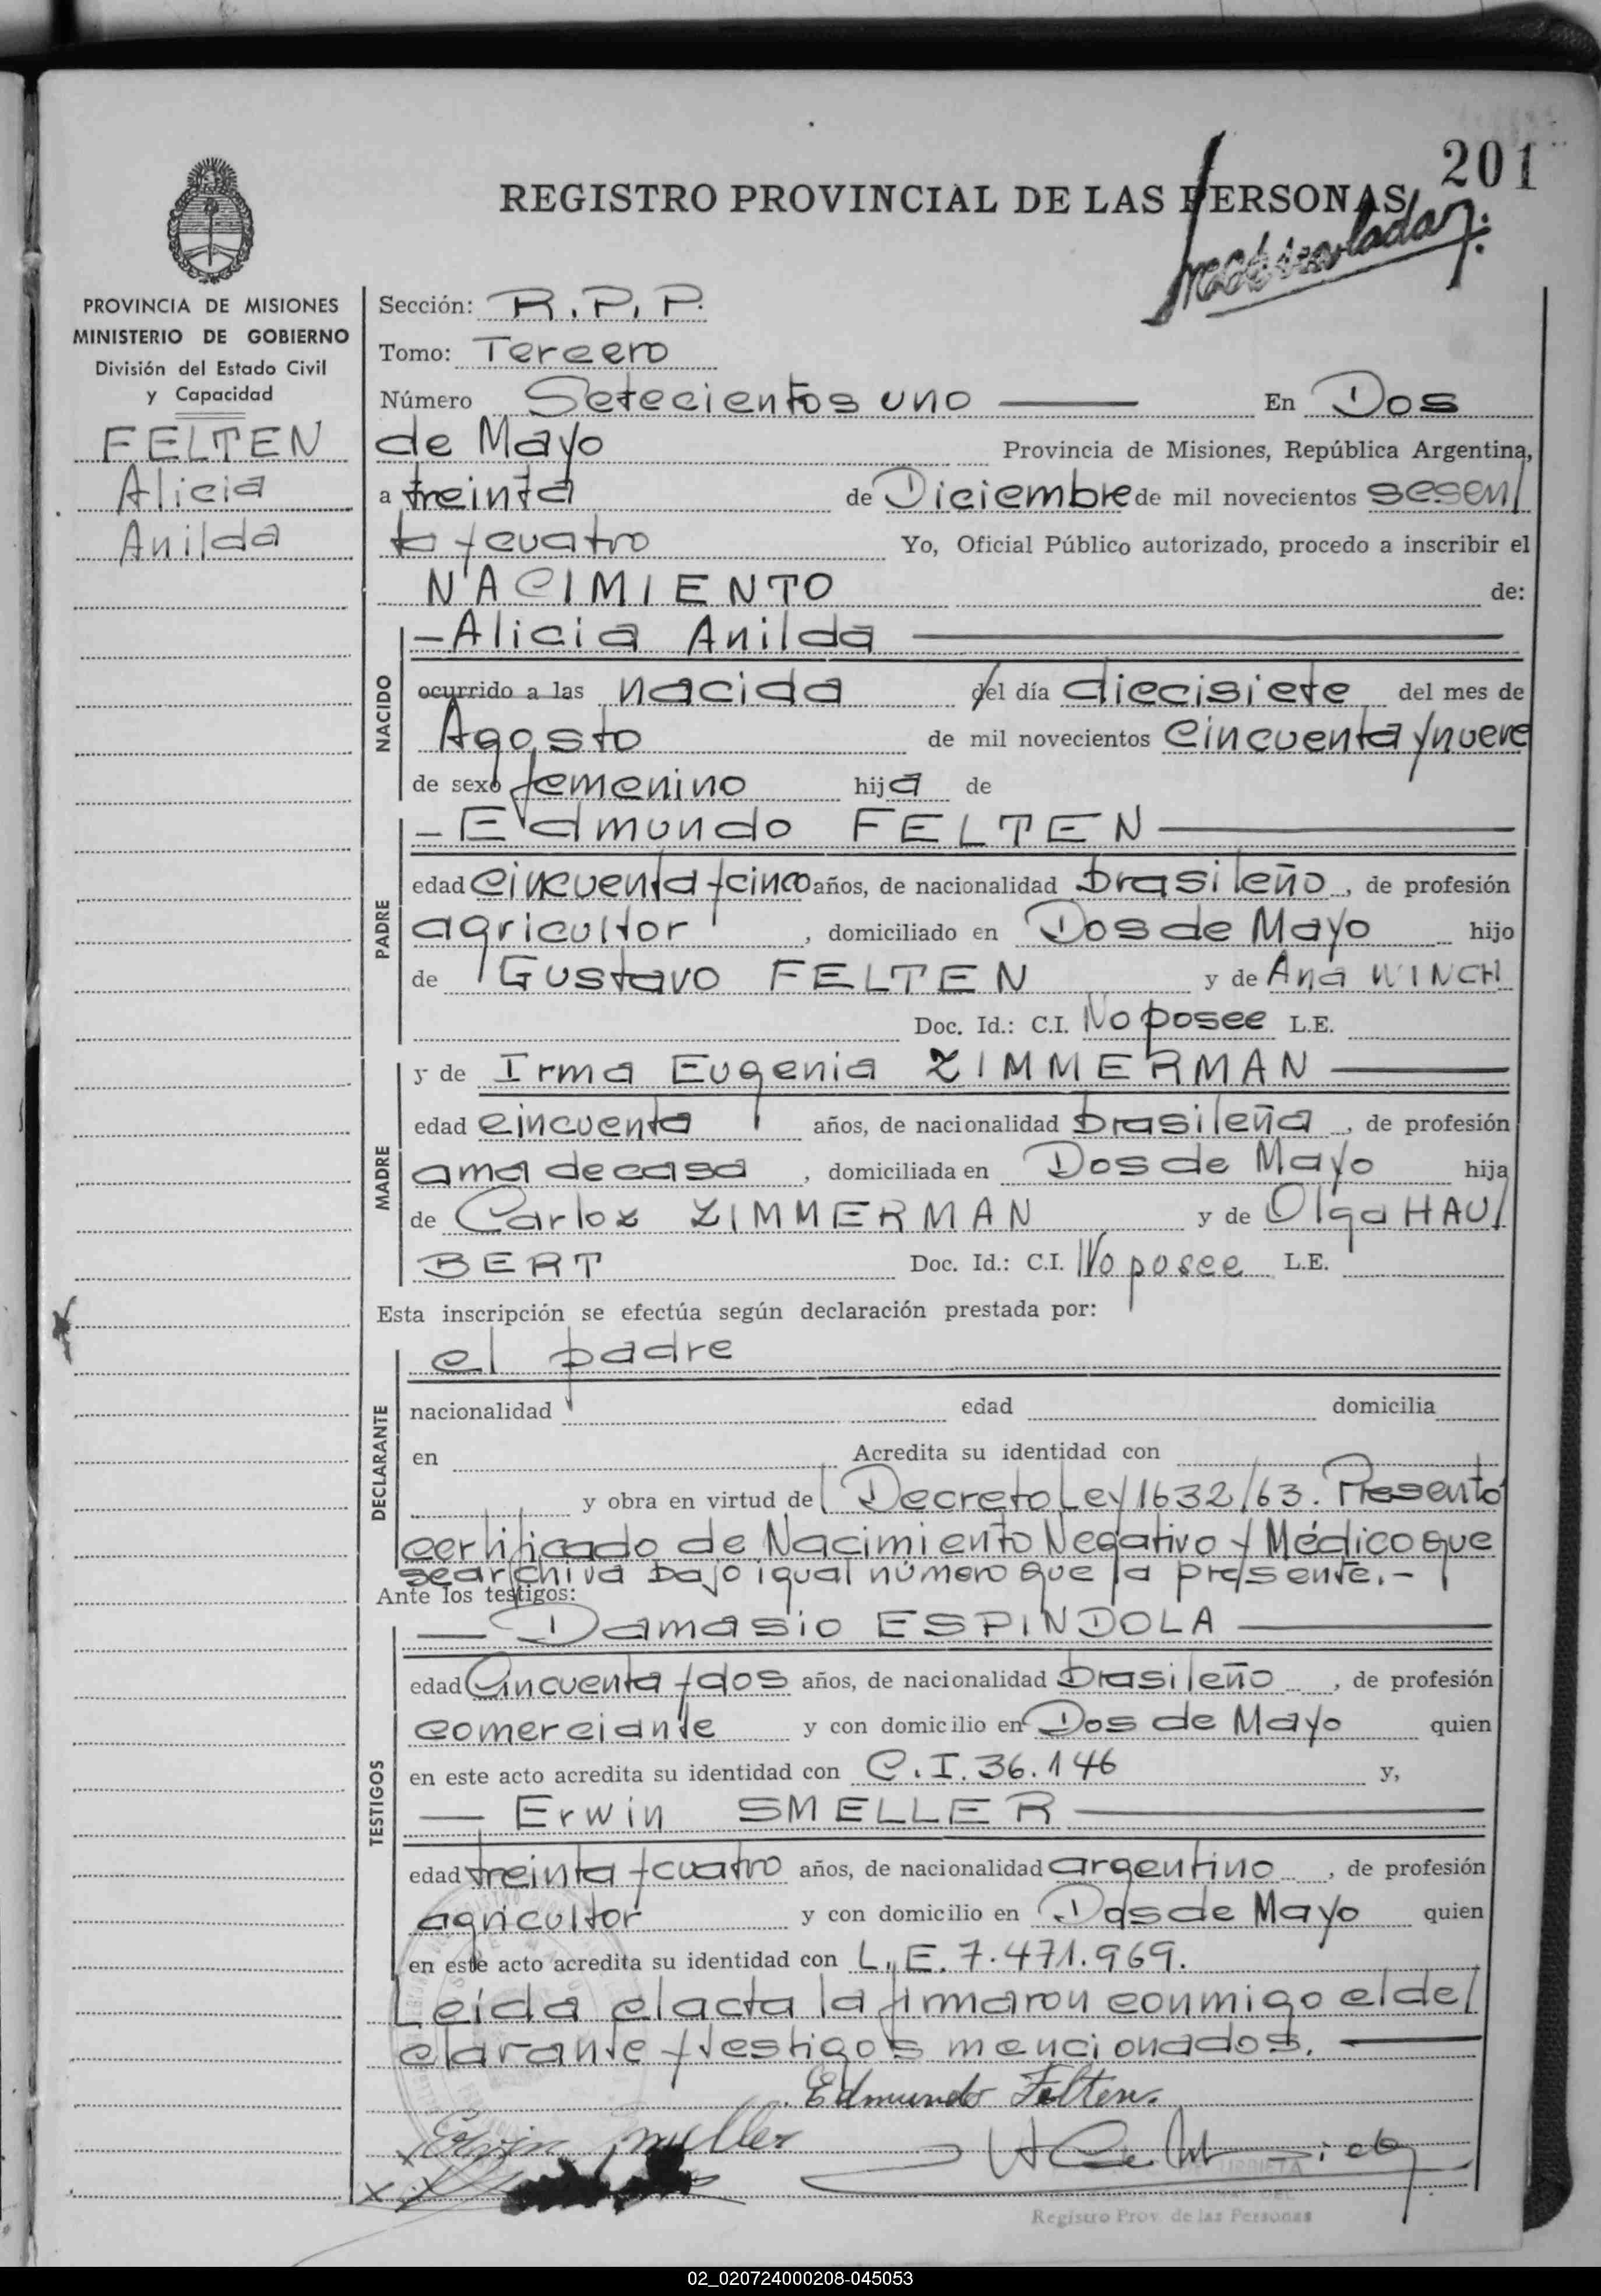 201
REGISTRO PROVINCIAL DE LAS PERSONAS
PROVINCIA DE MISIONES
MINISTERIO DE GOBIERNO
División del Estado Civil
y Capacidad
FELTEN
Alicia
Anilda
Sección: R.P.P.
Tomo: Tercero
Número Setecientos uno En Dos
de Mayo Provincia de Misiones, República Argentina,
a treinta de Diciembre de mil novecientos sesen/
ta y cuatro Yo, Oficial Público autorizado, procedo a inscribir el
NACIMIENTO de:
NACIDO
- Alicia Anilda
ocurrido a las nacida del día diecisiete del mes de
Agosto de mil novecientos Cincuenta y nueve
de sexo femenino hija de
PADRE
- Edmundo FELTEN
edad Cincuenta y cinco años, de nacionalidad brasileño, de profesión
agricultor, domiciliado en Dos de Mayo hijo
de Gustavo FELTEN y de Ana WINCH
Doc. Id.: C.I. No posee L.E.
MADRE
y de Irma Eugenia ZIMMERMAN
edad cincuenta años, de nacionalidad brasileña, de profesión
ama de casa, domiciliada en Dos de Mayo hija
de Carlos ZIMMERMAN y de Olga HAU/
BERT Doc. Id.: C.I. No posee L.E.
Esta inscripción se efectúa según declaración prestada por:
DECLARANTE
el padre
nacionalidad edad domicilia
en Acredita su identidad con
y obra en virtud de Decreto Ley 1632/63. Presentó
certificado de Nacimiento Negativo y Médico que
se archiva bajo igual número que la presente.-
Ante los testigos:
TESTIGOS
Damasio ESPINDOLA
edad Cincuenta y dos años, de nacionalidad brasileño, de profesión
comerciante y con domicilio en Dos de Mayo quien
en este acto acredita su identidad con C.I. 36.146 y,
Erwin SMELLER
edad treinta y cuatro años, de nacionalidad argentino, de profesión
agricultor y con domicilio en Dos de Mayo quien
en este acto acredita su identidad con L.E. 7.471.969.
Leida el acta la firmaron conmigo el de/
clarante y testigos mencionados.
Edmundo Felten.
Erwin Smeller
URBIETA
Registro Prov. de las Personas
02_020724000208-045053